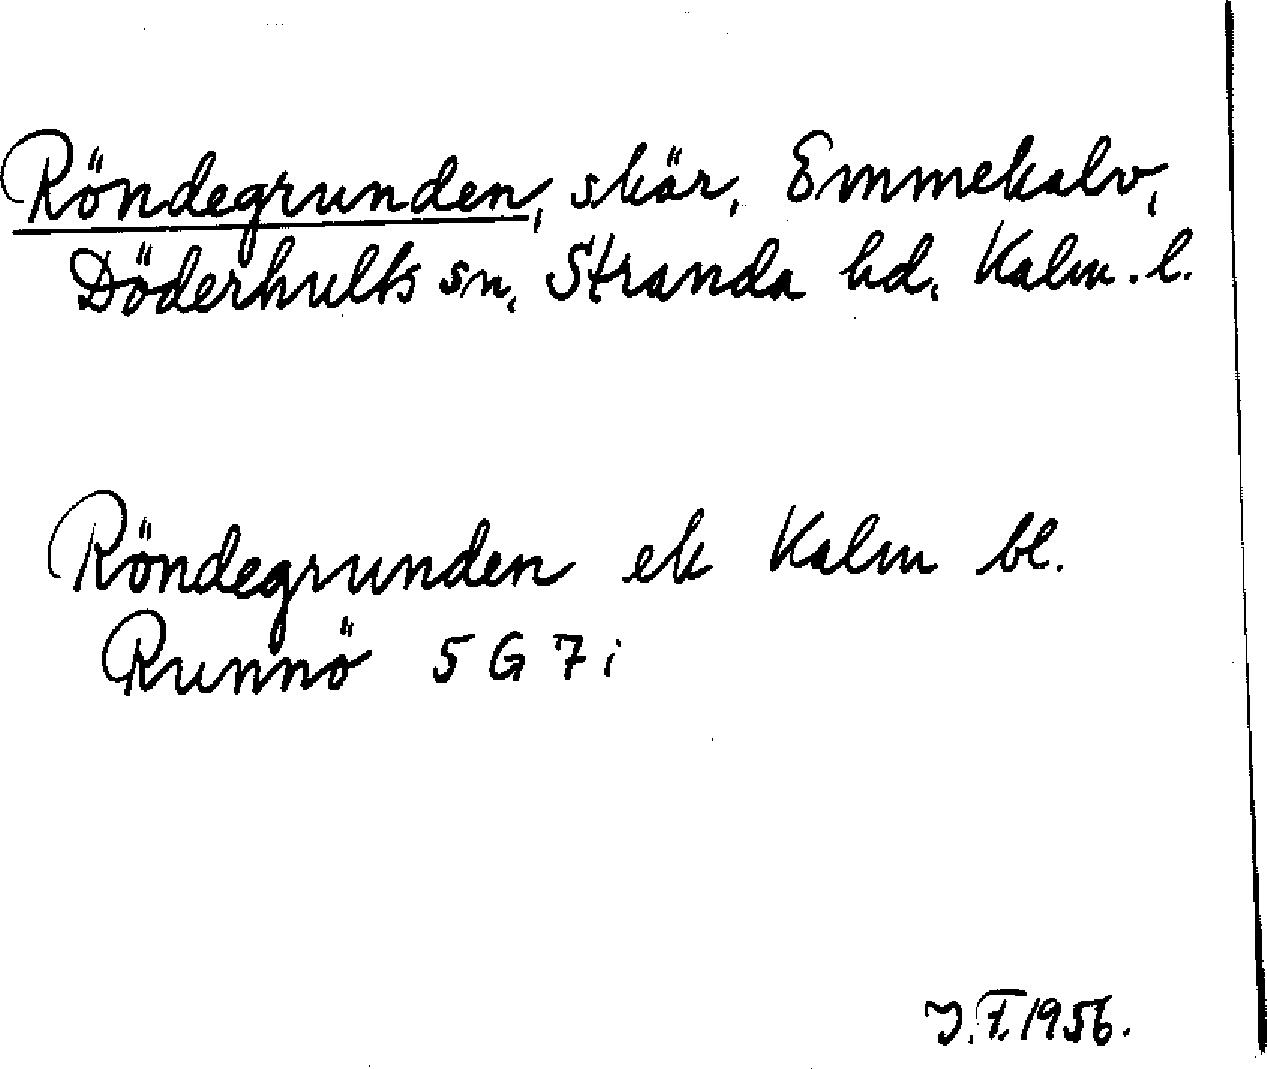 Röndegrunden, skär, Emmekalv,
Döderhults sn, Stranda hd, Kalm. l.
Röndegrunden ek Kalm bl.
Runnö 5 G 7 i
J.F. 1956.